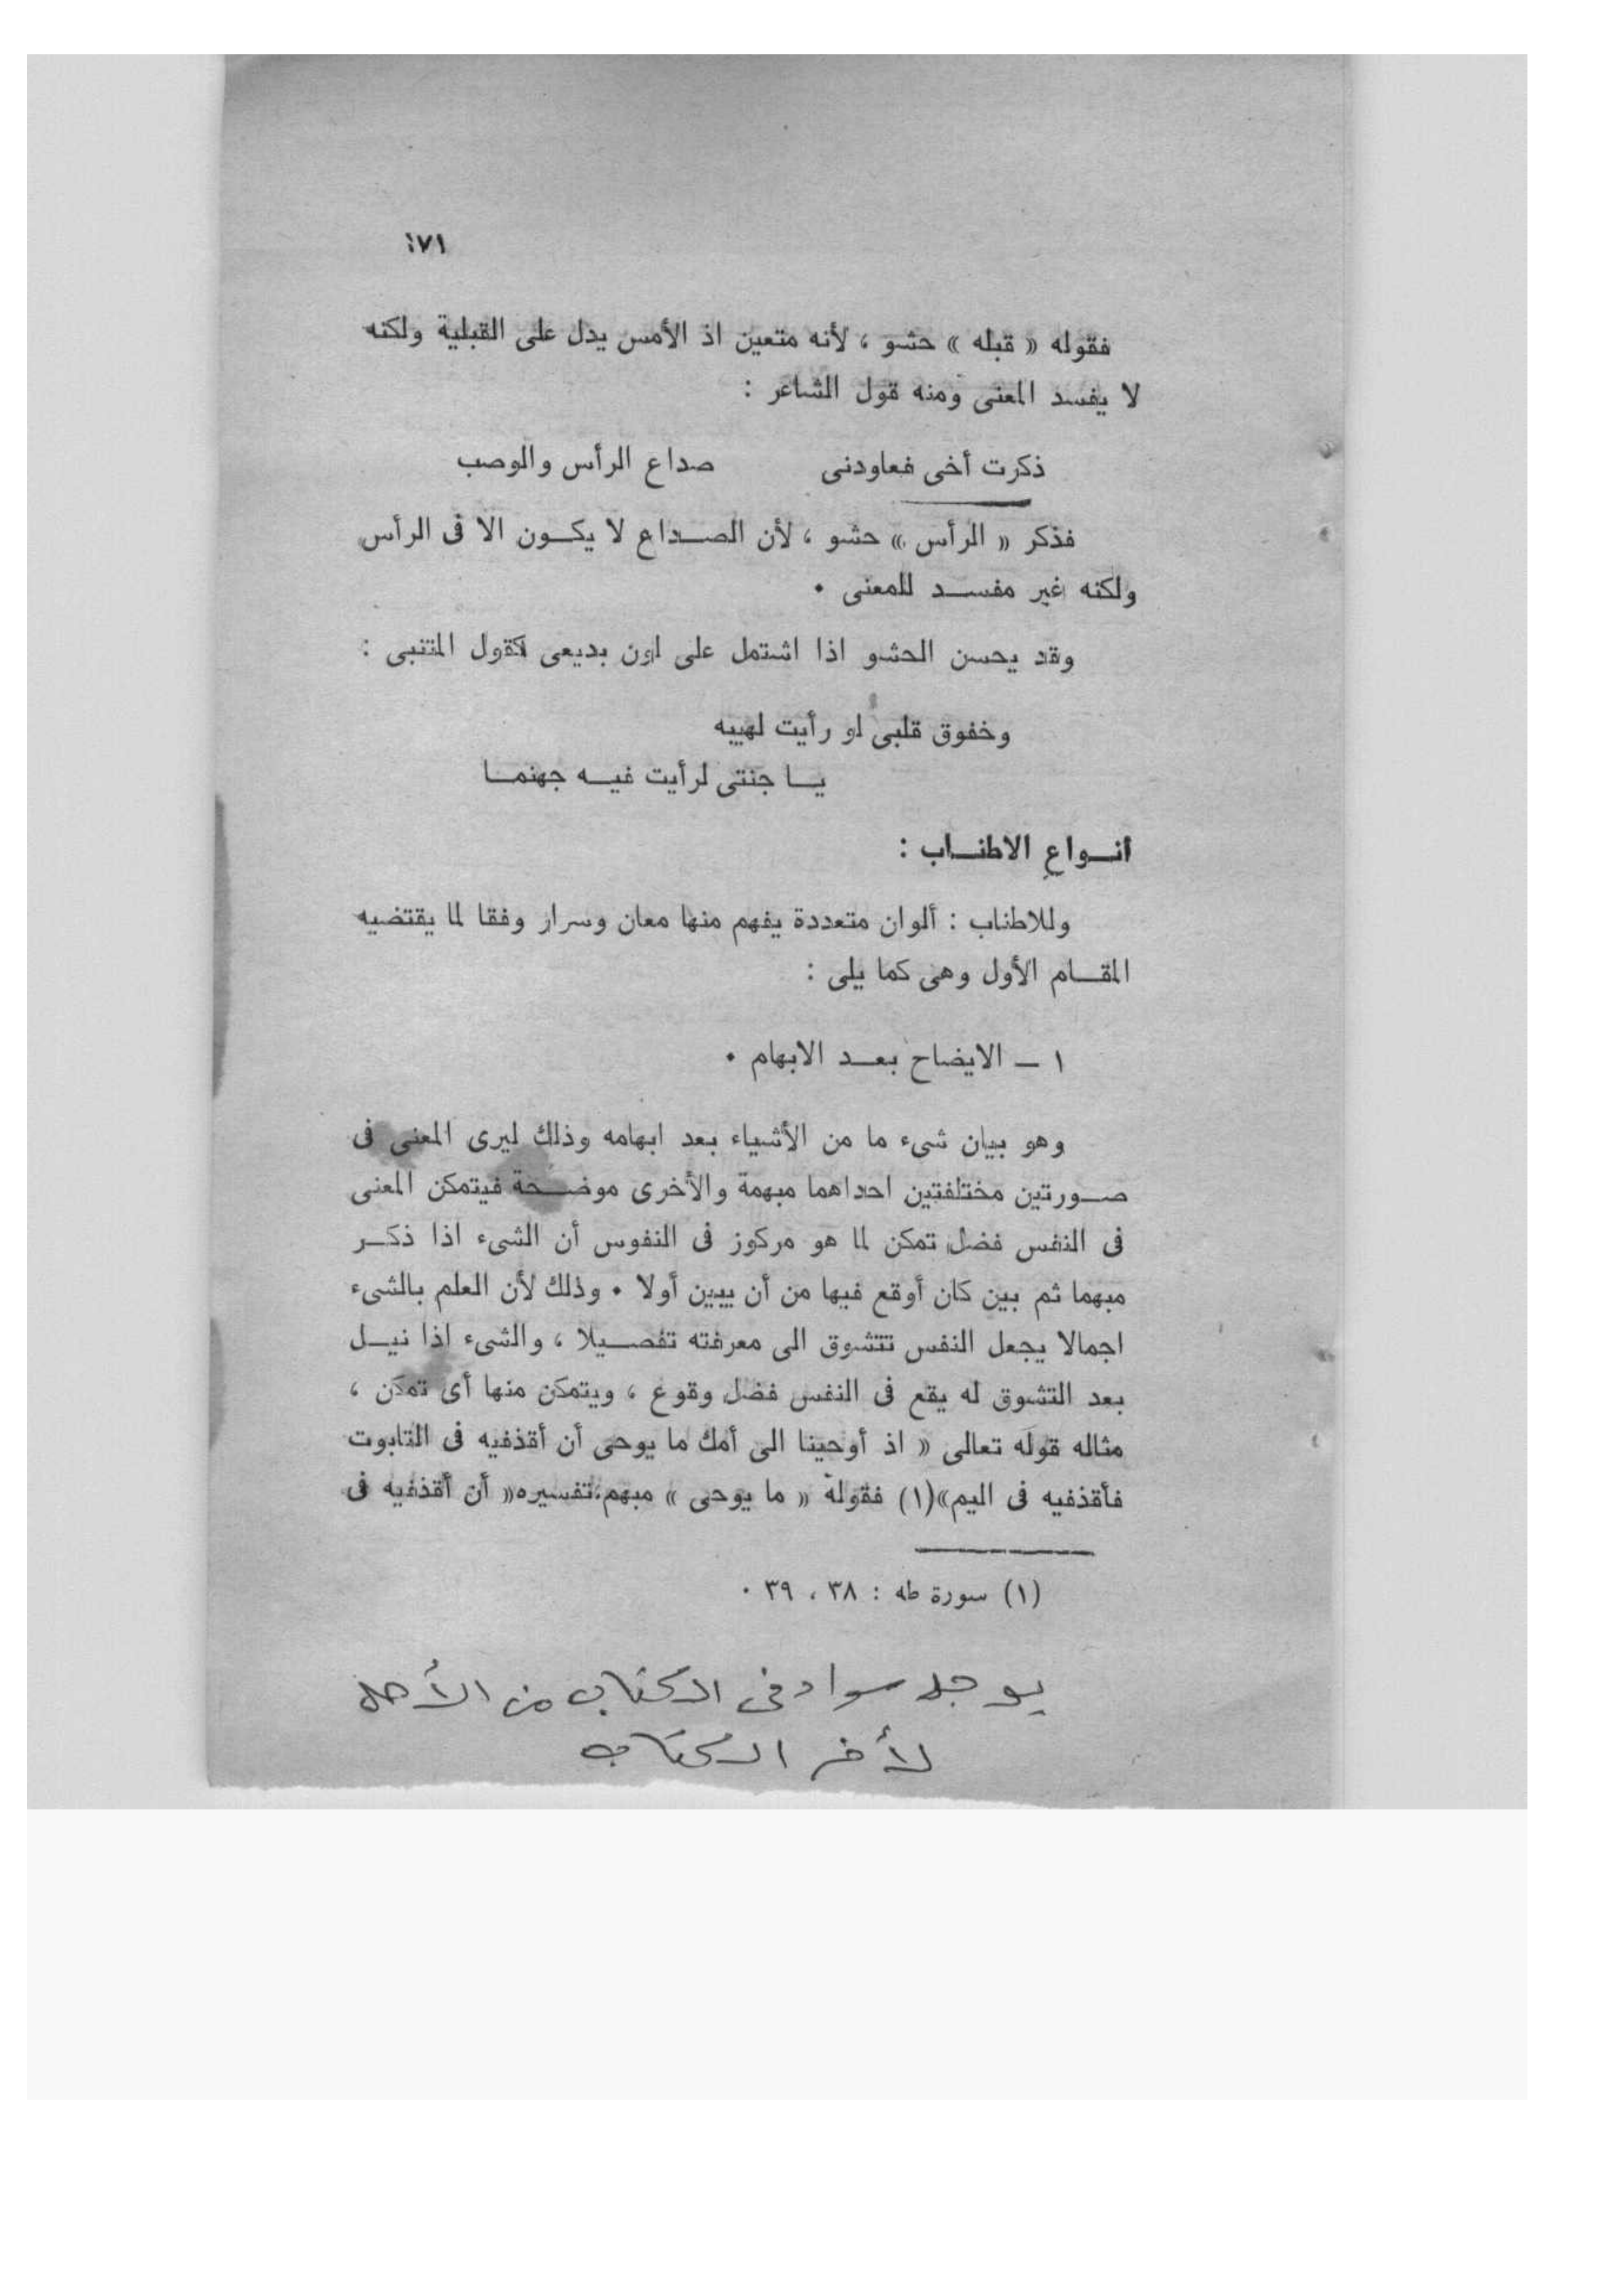 ١٧١
فقوله « قبله » حشو ، لأنه متعين اذ الأمس يدل على القبلية ولكنه
لا يفسد المعنى ومنه قول الشاعر :
ذكرت أخى فعاودنى صداع الرأس والوصب
فذكر « الرأس » حشو ، لأن الصداع لا يكون الا فى الرأس
ولكنه غير مفسد للمعنى .
وقد يحسن الحشو اذا اشتمل على لون بديعى كقول المتنبى :
وخفوق قلبى لو رأيت لهيبه
يا جنتى لرأيت فيه جهنما
أنواع الاطناب :
وللاطناب : ألوان متعددة يفهم منها معان وسرار وفقا لما يقتضيه
المقام الأول وهى كما يلى :
١ – الايضاح بعد الابهام .
وهو بيان شىء ما من الأشياء بعد ابهامه وذلك ليرى المعنى فى
صورتين مختلفتين احداهما مبهمة والأخرى موضحة فيتمكن المعنى
فى النفس فضل تمكن لما هو مركوز فى النفوس أن الشىء اذا ذكر
مبهما ثم بين كان أوقع فيها من أن يبين أولا . وذلك لأن العلم بالشىء
اجمالا يجعل النفس تتشوق الى معرفته تفصيلا ، والشىء اذا نيل
بعد التشوق له يقع فى النفس فضل وقوع ، ويتمكن منها أى تمكن ،
مثاله قوله تعالى « اذ أوحينا الى أمك ما يوحى أن أقذفيه فى التابوت
فأقذفيه فى اليم»(١) فقوله « ما يوحى » مبهم،تفسيره« أن أقذفيه فى
(١) سورة طه : ٣٨ ، ٣٩ .
يوجد سواد فى الكتاب من الأصل
لأخر الكتاب